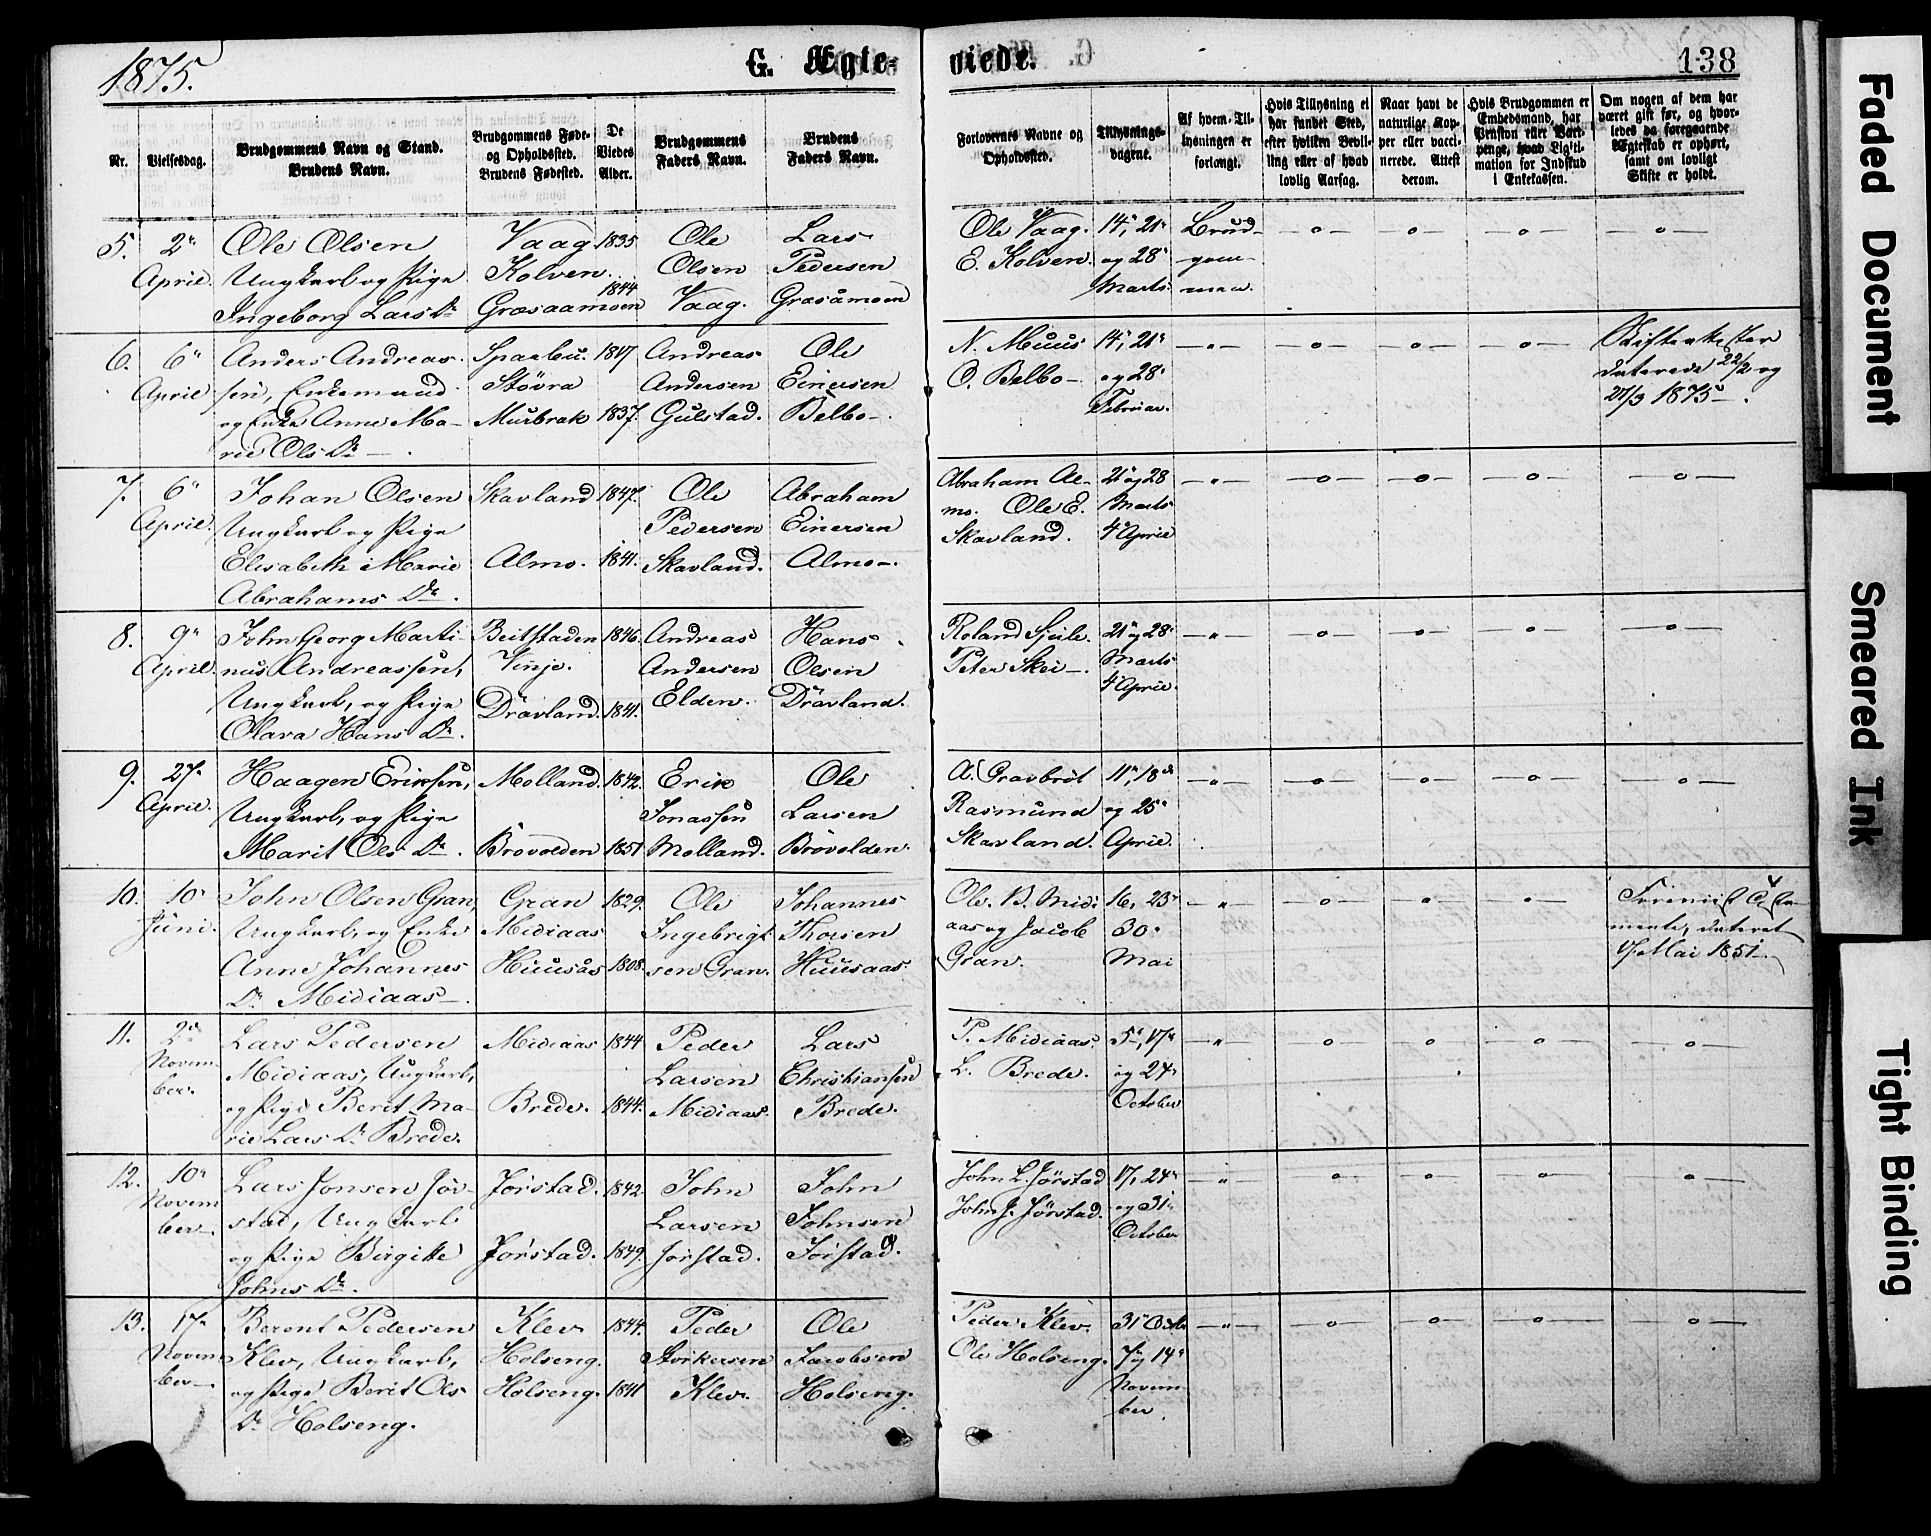 1875.
G. Ægte-
viede.
138
Nr.
Vielsesdag.
Brudgommens Navn og Stand.
Brudens Navn.
Brudgommens Føde-
og Opholdssted.
Brudens Fødested.
De
Viedes
Alder.
Brudgommens
Faders Navn.
Brudens
Faders Navn.
Forlovernes Navne og
Opholdssted.
Tillysnings-
dagene.
Af hvem Til-
lysningen er
forlangt.
Hvis Tillysning ei
har fundet Sted,
efter hvilken Bevil-
ling eller af hvad
lovlig Aarsag.
Naar havt de
naturlige Kop-
per eller vacci-
nerede. Attest
derom.
Hvis Brudgommen er
Embedsmand, har
Pension eller Vart-
penge, hvad Ligiti-
mation for Indskud
i Enkekassen.
Om nogen af dem har
været gift før, og hvor-
ledes da foregaaende
Ægteskab er ophørt,
samt om lovligt
Skifte er holdt.
5.
2"
April
Ole Olsen
Ungkarl og Pige
Ingeborg Lars Dr
Vaag
Kolven
Græsaamoen
1835
1844
Ole
Olsen
Vaag.
Lars
Pedersen
Græsåmoen
Ole Vaag.
E. Kolven.
14", 21"
og 28"
Marts
Brud-
gom-
men.
—o— —o— —o— —o—
6.
6"
April
Anders Andreas-
sen, Enkemand
og Enke Anne Ma-
rie Ols Dr —.
Sparbu.
Støvra
Murbrak
1847
1837.
Andreas
Andersen
Gulstad.
Ole
Einersen
Belbo—.
N. Muus
O. Belbo—
14", 21"
og 28"
Februar.
—"— —o— —o— —o—
Skifteattester
daterede 22/2 og
27/3 1875—.
7.
6"
April.
Johan Olsen
Ungkarl og Pige
Elisabeth Marie
Abrahams Dr.
Skavland
Almo.
1847.
1841.
Ole
Pedersen
Skavland.
Abraham
Einersen
Almo—.
Abraham Al-
mo. Ole E.
Skavland.
21" og 28
Marts
4" April
—"— —o— —o— —o— —o—
8.
9"
April.
John Georg Marti-
nus Andreassen,
Ungkarl, og Pige
Olava Hans Dr.
Beitstaden
Vinje.
Drävland.
1846.
1841.
Andreas
Andersen
Elden.
Hans
Olsen
Drävland.
Roland Speile.
Peter Skei—.
21" og 28"
Marts
4" April.
—"— —o— —o— —o— —o—
9.
27"
April.
Haagen Eriksen,
Ungkarl, og Pige
Marit Ols Dr.
Molland.
Brovolden
1842.
1851
Erik
Jonassen
Molland.
Ole
Larsen
Brövolden.
A. Gravbröt
Rasmund
Skavland.
11", 18"
og 25"
April.
—"— —o— —o— —o— —o—
10.
10"
Juni.
John Olsen Gran,
Ungkarl, og Enke
Anne Johannes
Dr Midiaas—.
Gran
Midiaas
Huusås
1829.
1808.
Ole
Ingebrigt-
sen Gran.
Johannes
Thorsen
Huusaas.
Ole B. Midi
aas og Jacob
Gran.
16, 23"
30"
Mai
—"— —o— —o— —o—
mente, dateret
Mai 1851.
11.
2"
Novem-
ber.
Lars Pedersen
Midiaas, Ungkarl,
og Pige Berit Ma-
rie Lars Dr Brede.
Midiaas
Brede.
1844
1844.
Peder
Larsen
Midiaas.
Lars
Christiansen
Brede.
P. Midiaas.
L. Brede.
5", 17"
og 24"
October
—"— —o— —o— —o— —o—
12.
10"
Novem
ber—
Lars Jonsen Jör-
stad, Ungkarl
og Pige Birgitte
Johns Dr.
Jörstad.
Jörstad.
1842.
1849.
John
Larsen
Jörstad.
John
Johnsen
Jörstad.
John L. Jörstad
John J. Jörstad.
17, 24"
og 31"
October
—"— —o— —o— —o— —o—
13.
17"
Novem
ber—
Berent Pedersen
Klev, Ungkarl,
og Pige Berit Ols
Dr Holseng.
Klev
Holseng.
Holseng.
1844.
1841
Peder
Klev.
Ole
Jacobsen
Holseng.
Peder Klev.
Ole Holseng.
31" Octbr
7 og 14"
Novem-
ber.
—"— —o— —o— —o— —o—
Faded Document
Smeared Ink
Tight Binding